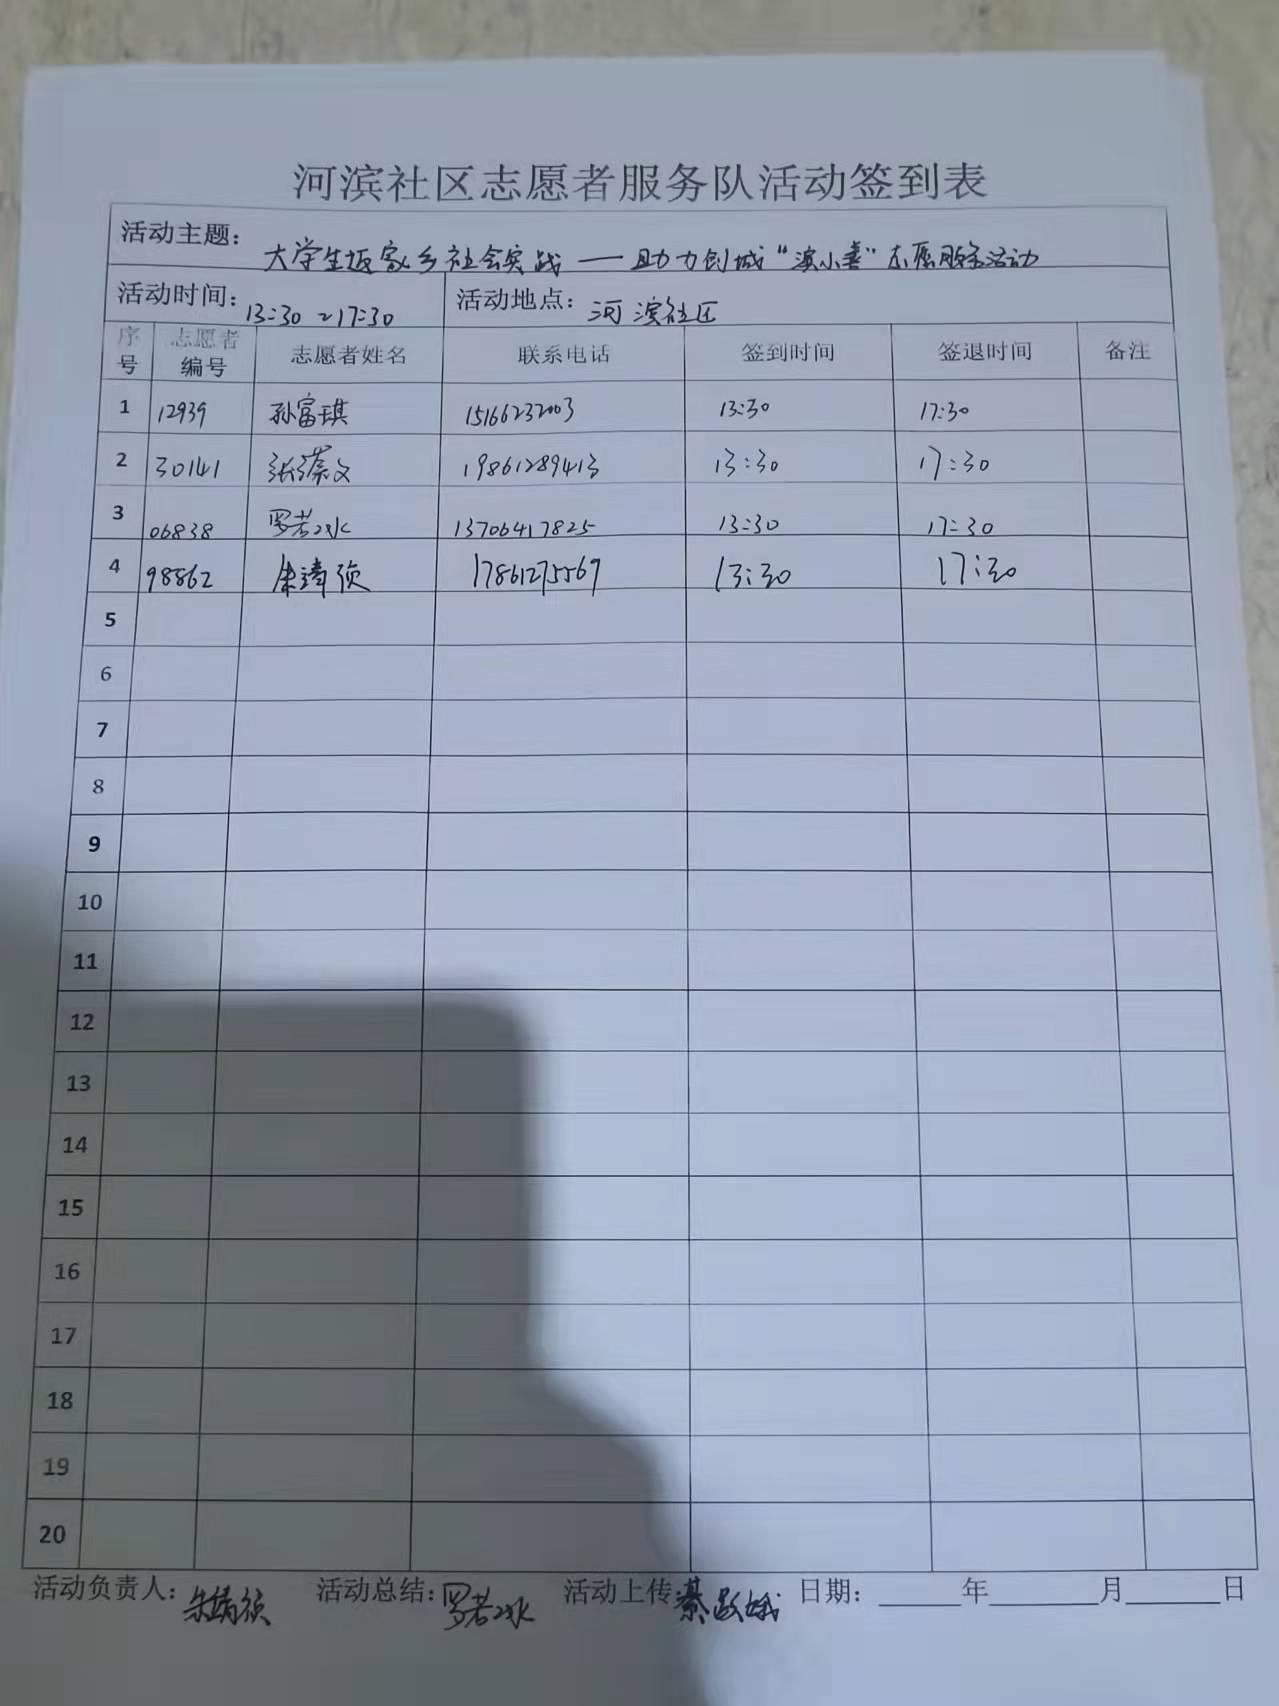 河滨社区志愿者服务队活动签到表
活动主题: 大学生返家乡社会实践——助力创城“滨小善”志愿服务活动
活动时间: 13:30~17:30 活动地点: 河滨社区
序号 志愿者编号 志愿者姓名 联系电话 签到时间 签退时间 备注
1 12939 孙富琪 15166232003 13:30 17:30
2 30141 张潆文 19861289413 13:30 17:30
3 06838 罗若冰 13706417825 13:30 17:30
4 98862 朱靖颀 17861275569 13:30 17:30
5
6
7
8
9
10
11
12
13
14
15
16
17
18
19
20
活动负责人: 朱靖颀 活动总结: 罗若冰 活动上传: 日期: 年 月 日